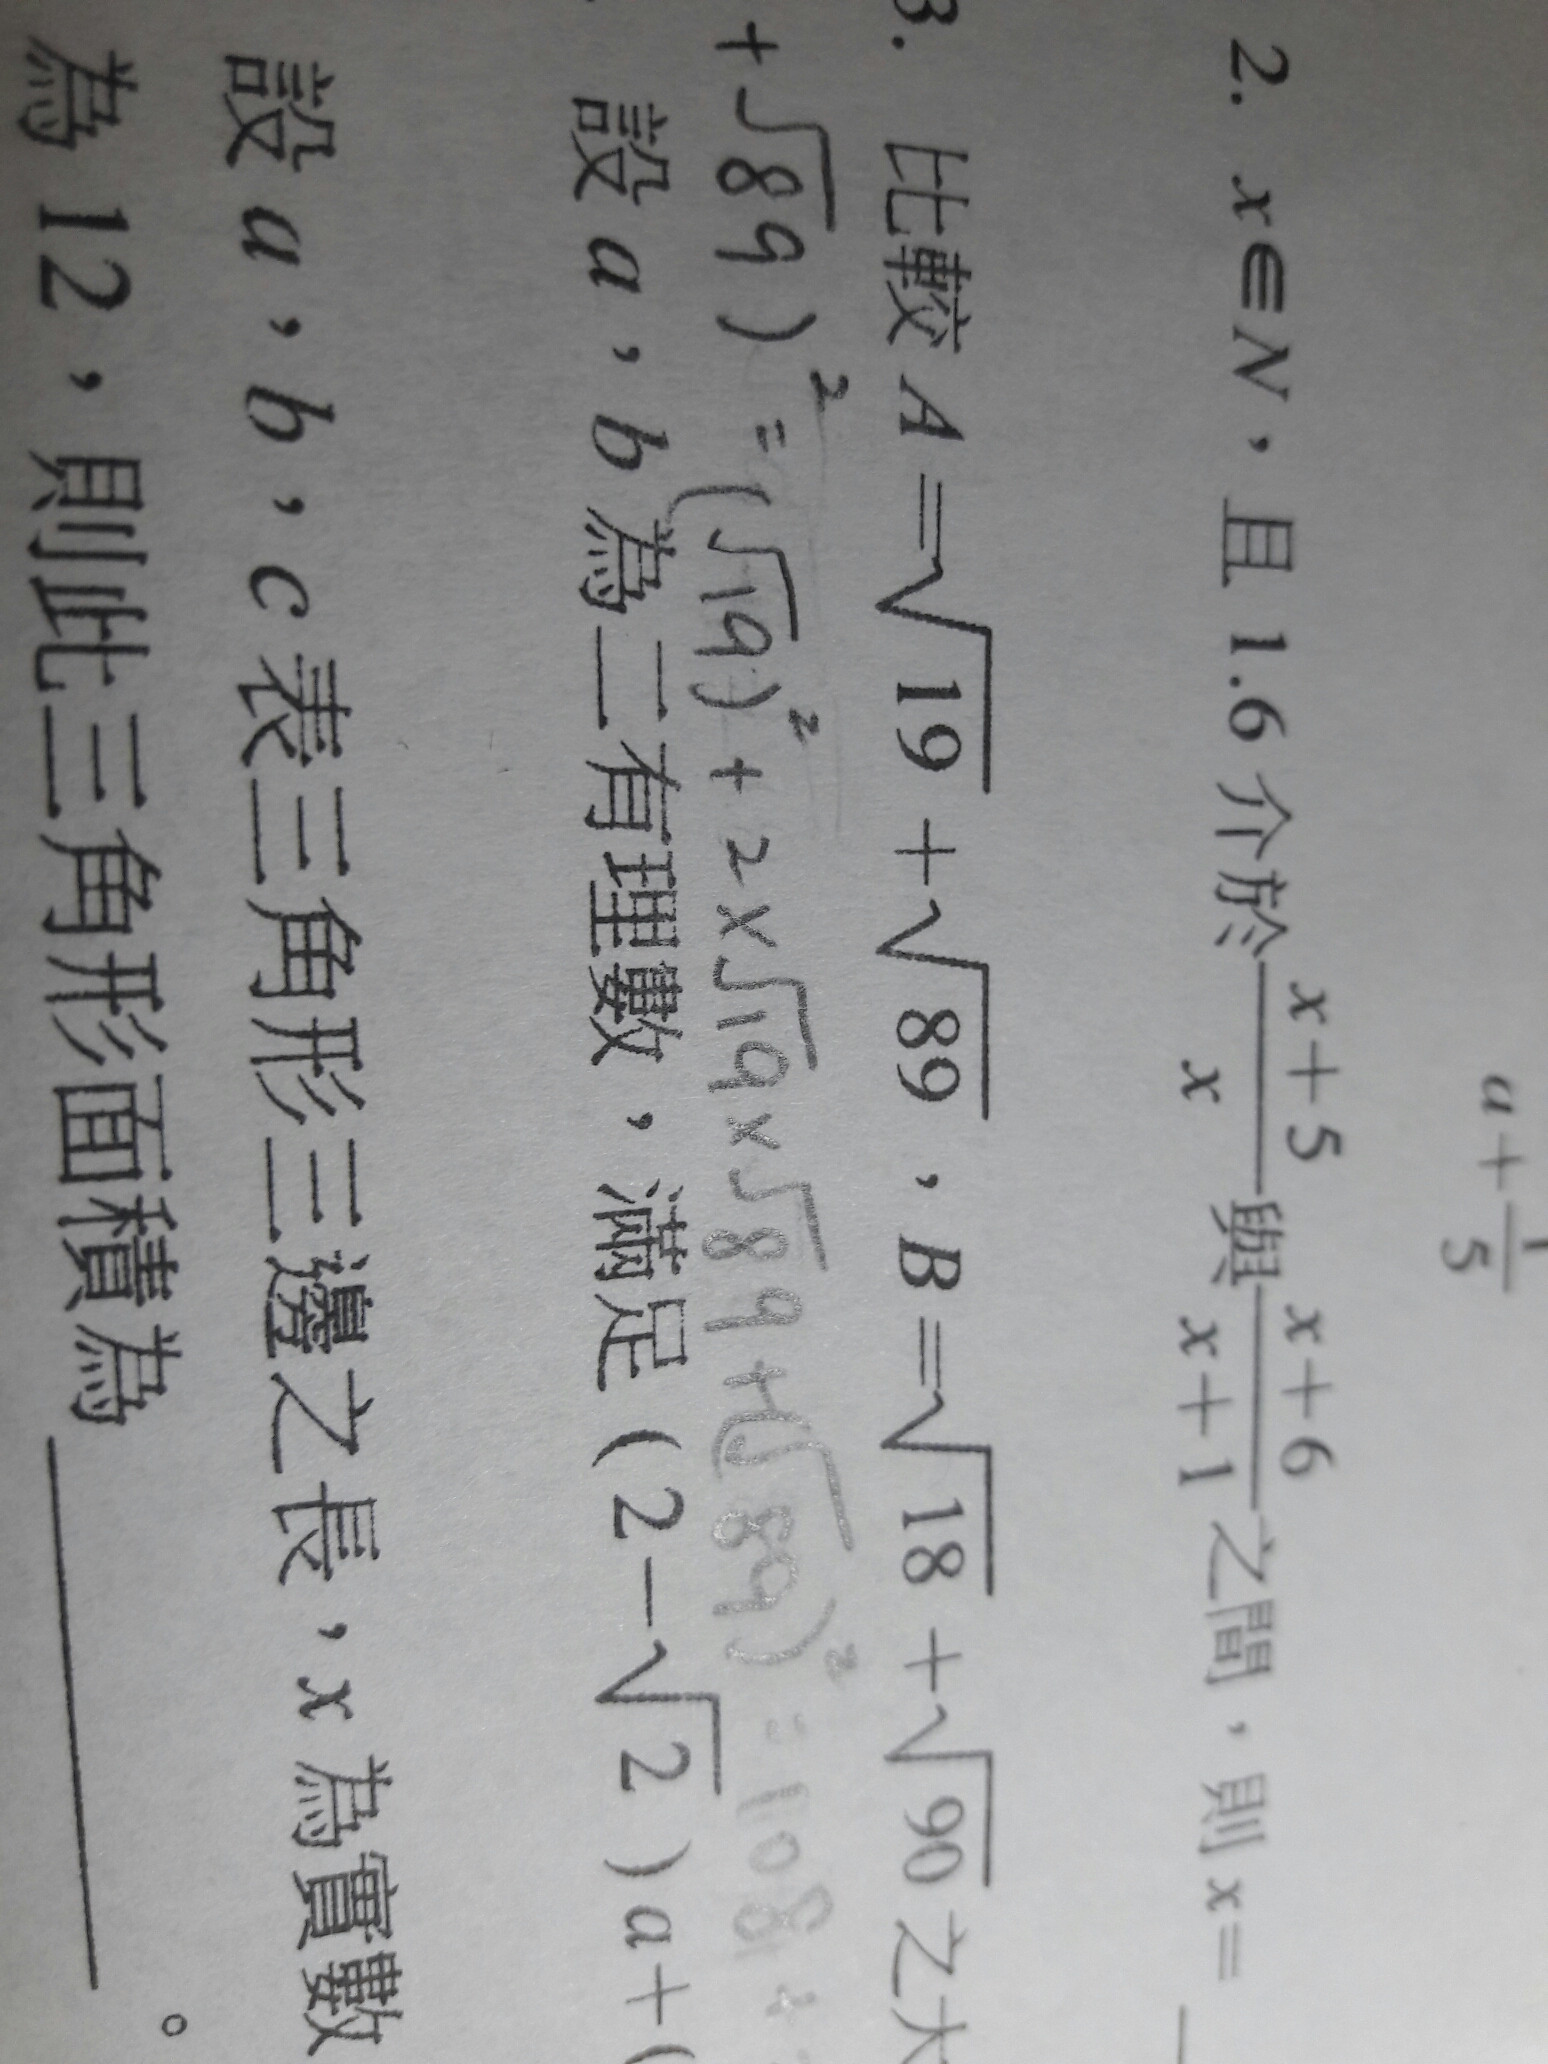 a + 1/5
2. x∈N，且 1.6 介於 (x+5)/x 與 (x+6)/(x+1) 之間，則 x=
3. 比較 A=√19+√89，B=√18+√90 之大
+√89)² = (√19)² + 2×√19×√89+(√89)² = 108 +
設 a，b 為二有理數，滿足 (2-√2)a+(
設 a，b，c 表三角形三邊之長，x 為實數
為 12，則此三角形面積為＿＿＿＿。